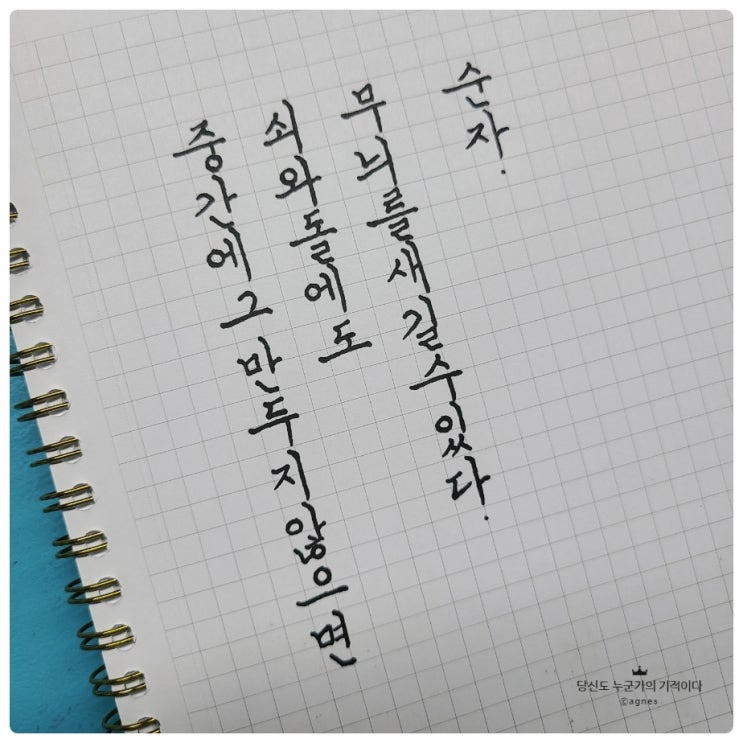 중간에 그만두지 않으면
쇠와 돌에도
무늬를 새길 수 있다.
순자.
당신도 누군가의 기적이다
©agnes